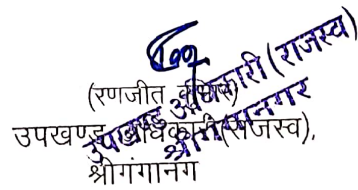 (रणजीत
उपखण्ड अधिकारी(राजस्व),
श्रीगंगानग
उपखण्ड अधिकारी (राजस्व)
श्रीगंगानगर